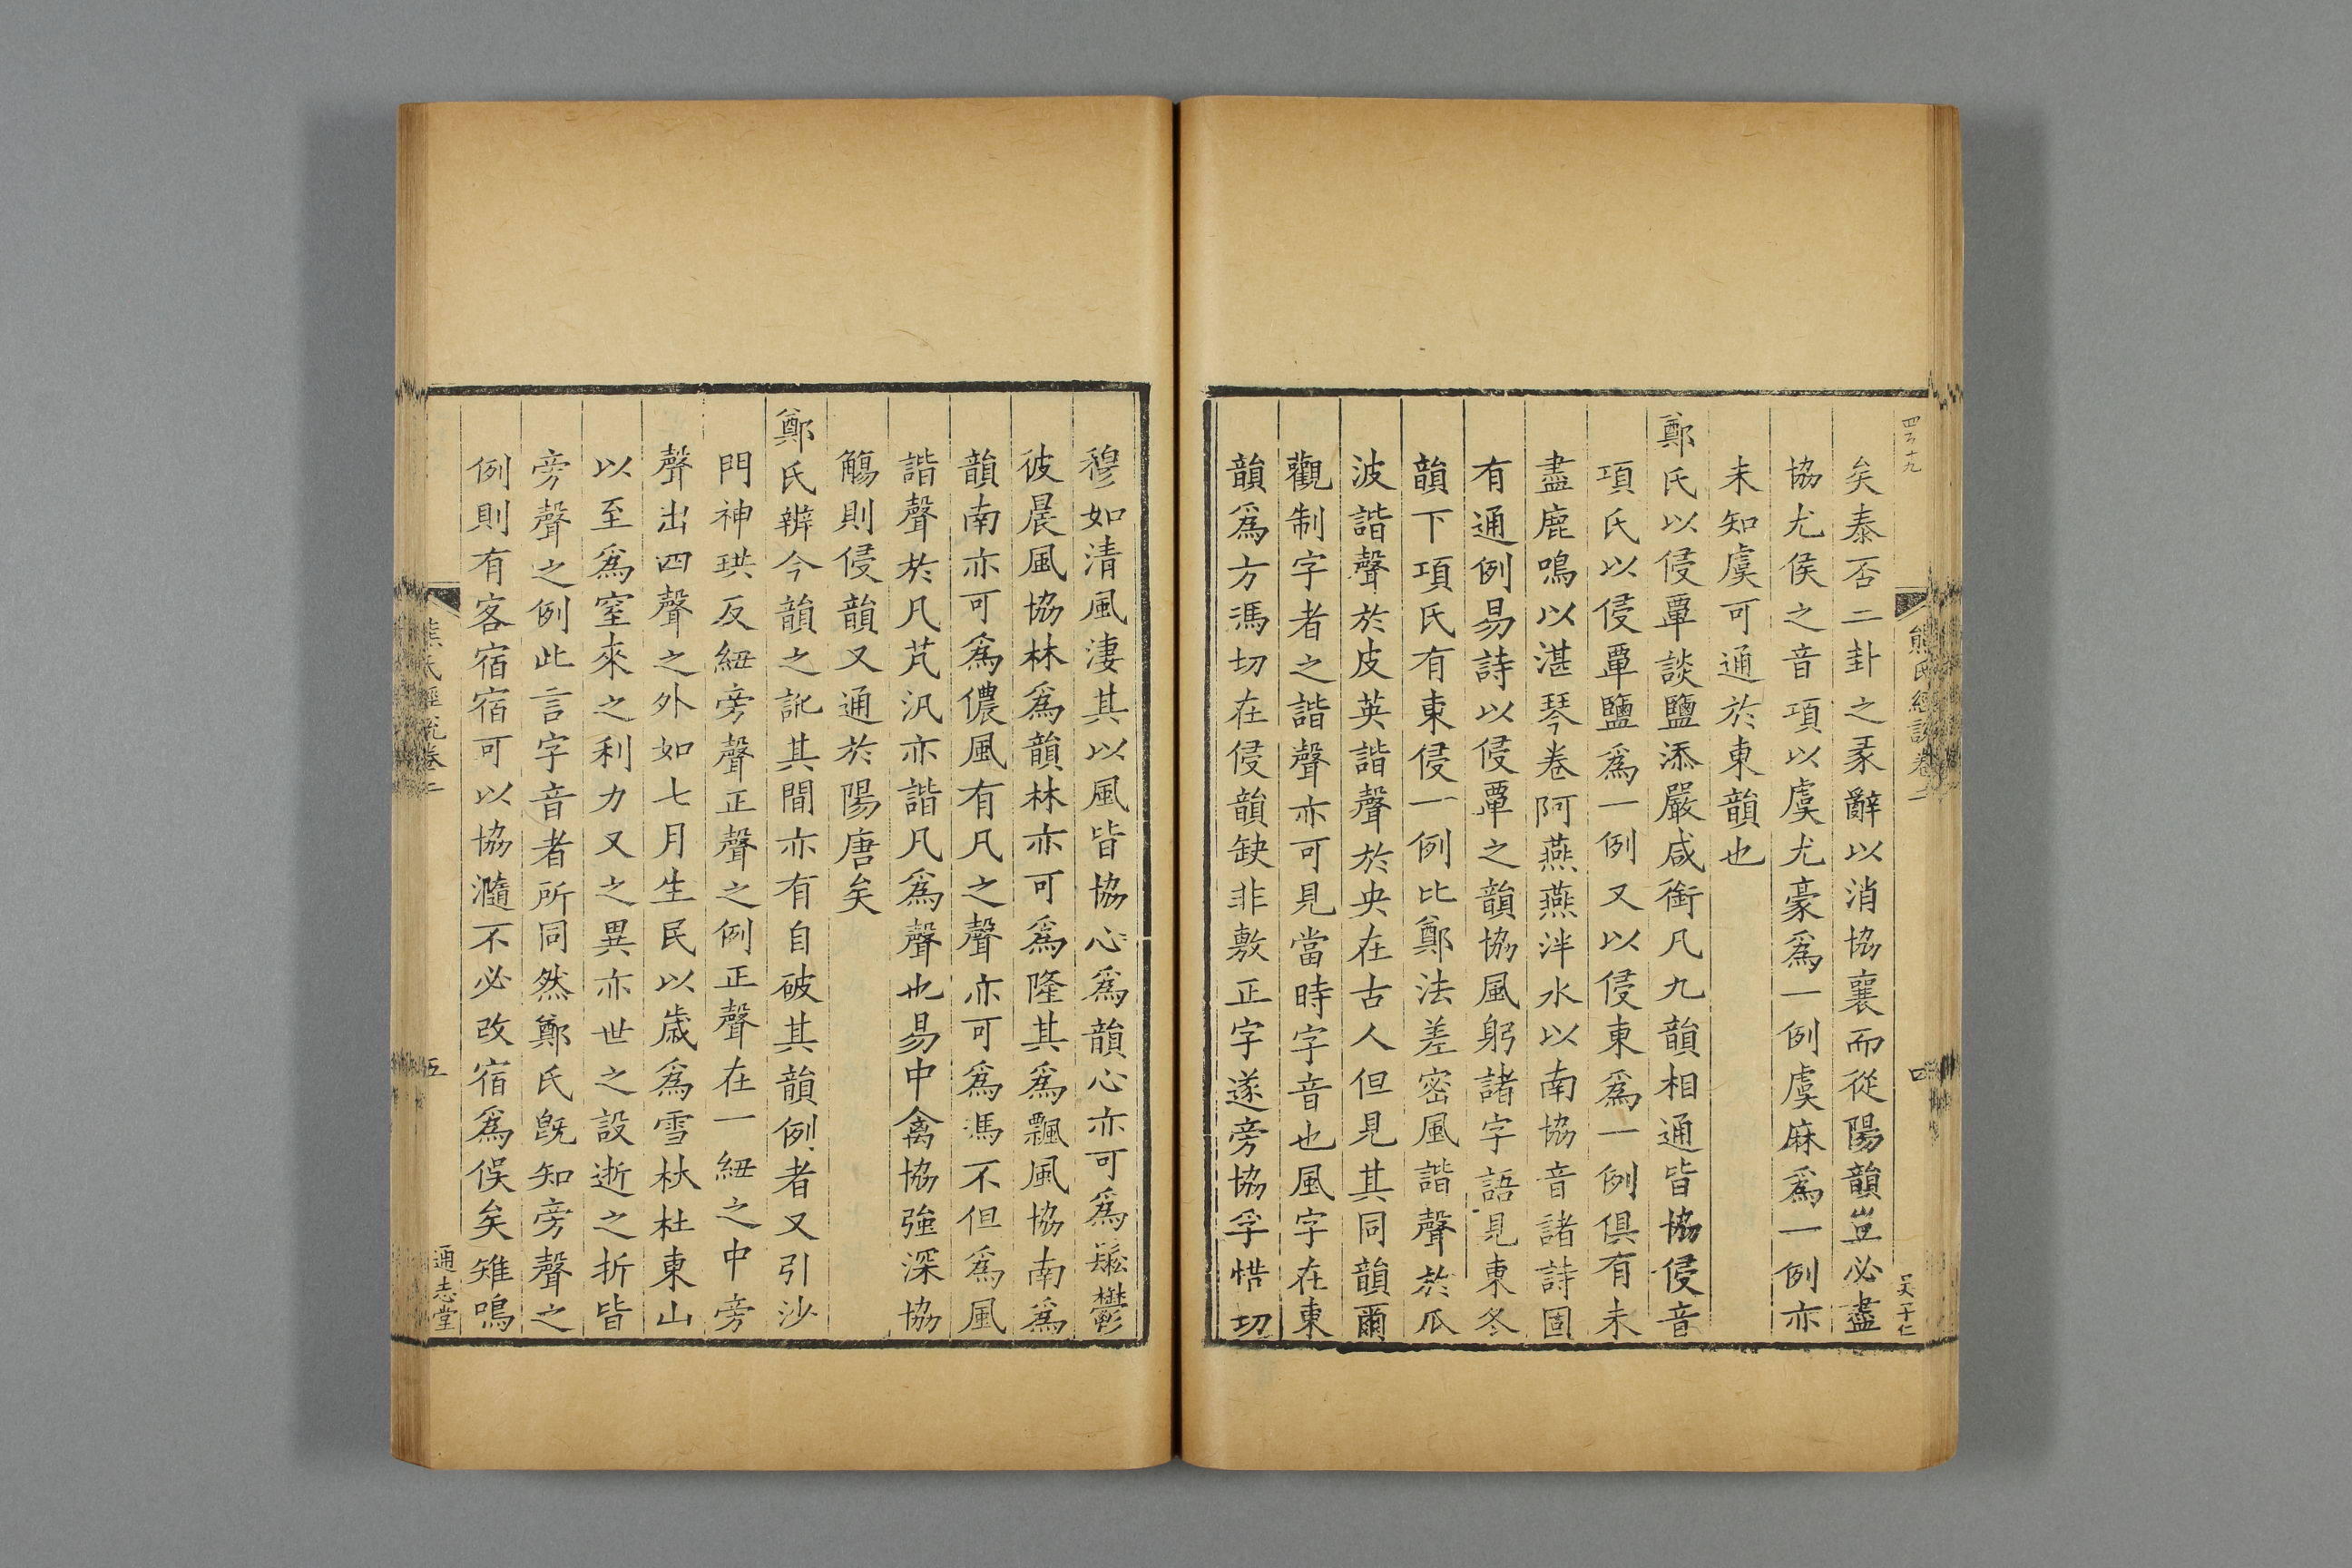 四百十九
熊氏經說卷二
四
吴士仁
矣泰否二卦之彖辭以消協襄而從陽韻豈必盡
協尤侯之音項以虞尤豪爲一例虞麻爲一例亦
未知虞可通於東韻也
鄭氏以侵覃談鹽添嚴咸銜凡九韻相通皆協侵音
項氏以侵覃鹽爲一例又以侵東爲一例俱有未
盡鹿鳴以湛琴卷阿燕燕泮水以南協音諸詩固
有通例易詩以侵覃之韻協風躬諸字語見東冬
韻下項氏有東侵一例比鄭法差密風諧聲於瓜
波諧聲於皮英諧聲於央在古人但見其同韻爾
觀制字者之諧聲亦可見當時字音也風字在東
韻爲方馮切在侵韻缺非敷正字遂旁協孚愔切
穆如清風淒其以風皆協心爲韻心亦可爲鬆鬱
彼晨風協林爲韻林亦可爲隆其爲飄風協南爲
韻南亦可爲儂風有凡之聲亦可爲馮不但爲風
諧聲於凡芃汎亦諧凡爲聲也易中禽協強深協
觴則侵韻又通於陽唐矣
鄭氏辨今韻之訛其間亦有自破其韻例者又引沙
門神珙反紐旁聲正聲之例正聲在一紐之中旁
聲出四聲之外如七月生民以歲爲雪杕杜東山
以至爲窒來之利力又之異亦世之設逝之折皆
旁聲之例此言字音者所同然鄭氏旣知旁聲之
例則有客宿宿可以協瀡不必改宿爲俟矣雉鳴
熊氏經說卷二
五
通志堂